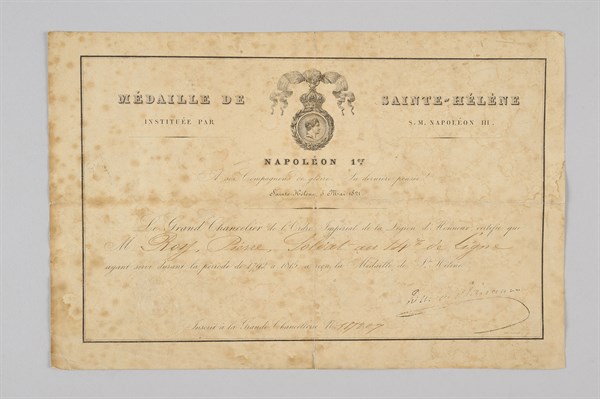 MÉDAILLE DE SAINTE-HÉLÈNE
INSTITUÉE PAR S. M. NAPOLÉON III.
NAPOLÉON 1er
A ses Compagnons de gloire, sa dernière pensée!
Sainte-Hélène 5 Mai 1821
Le Grand Chancelier de l'Ordre Impérial de la Légion d'Honneur certifie que
M Roy, Pierre, Soldat au 14e de Ligne
ayant servi durant la période de 1792 à 1815 a reçu la Médaille de Ste Hélène
Inscrit à la Grande Chancellerie No